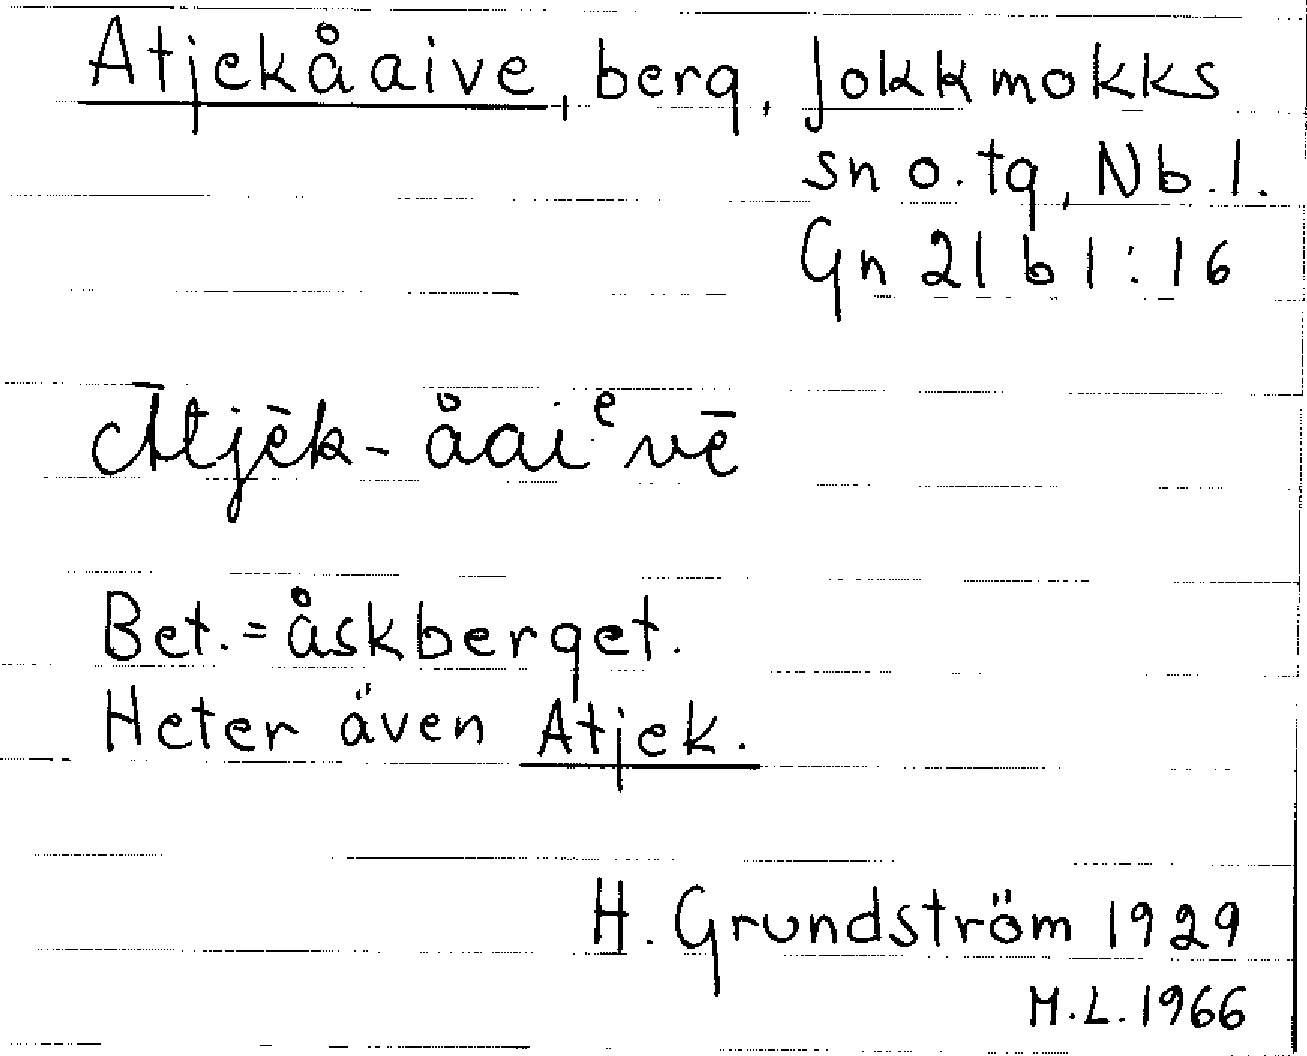 Atjekåaive, berg, Jokkmokks
sn o. tg, Nb. l.
Gn 21 b 1:16
Ātjēk-åaiᵉvē
Bet. = åskberget.
Heter även Atjek.
H. Grundström 1929
M.L. 1966